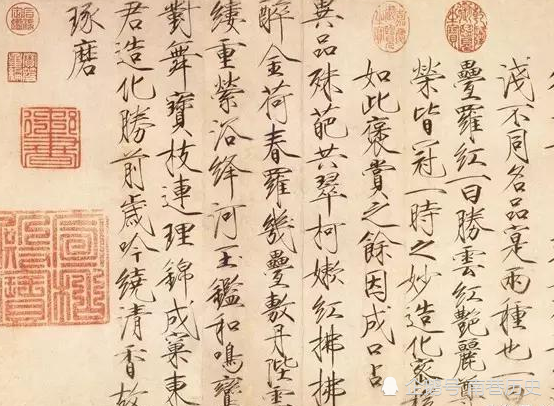 淺不同名品寔兩種也一
疊羅紅一曰勝雲紅艷麗尊
榮皆冠一時之妙造化密移
如此褒賞之餘因成口占
異品殊葩共翠柯嫩紅拂拂
醉金荷春羅幾疊敷丹陛雲
縷重縈浴絳河玉鑑和鳴鸞
對舞寶枝連理錦成窠東
君造化勝前歲吟繞清香故
琢磨
企鹅号